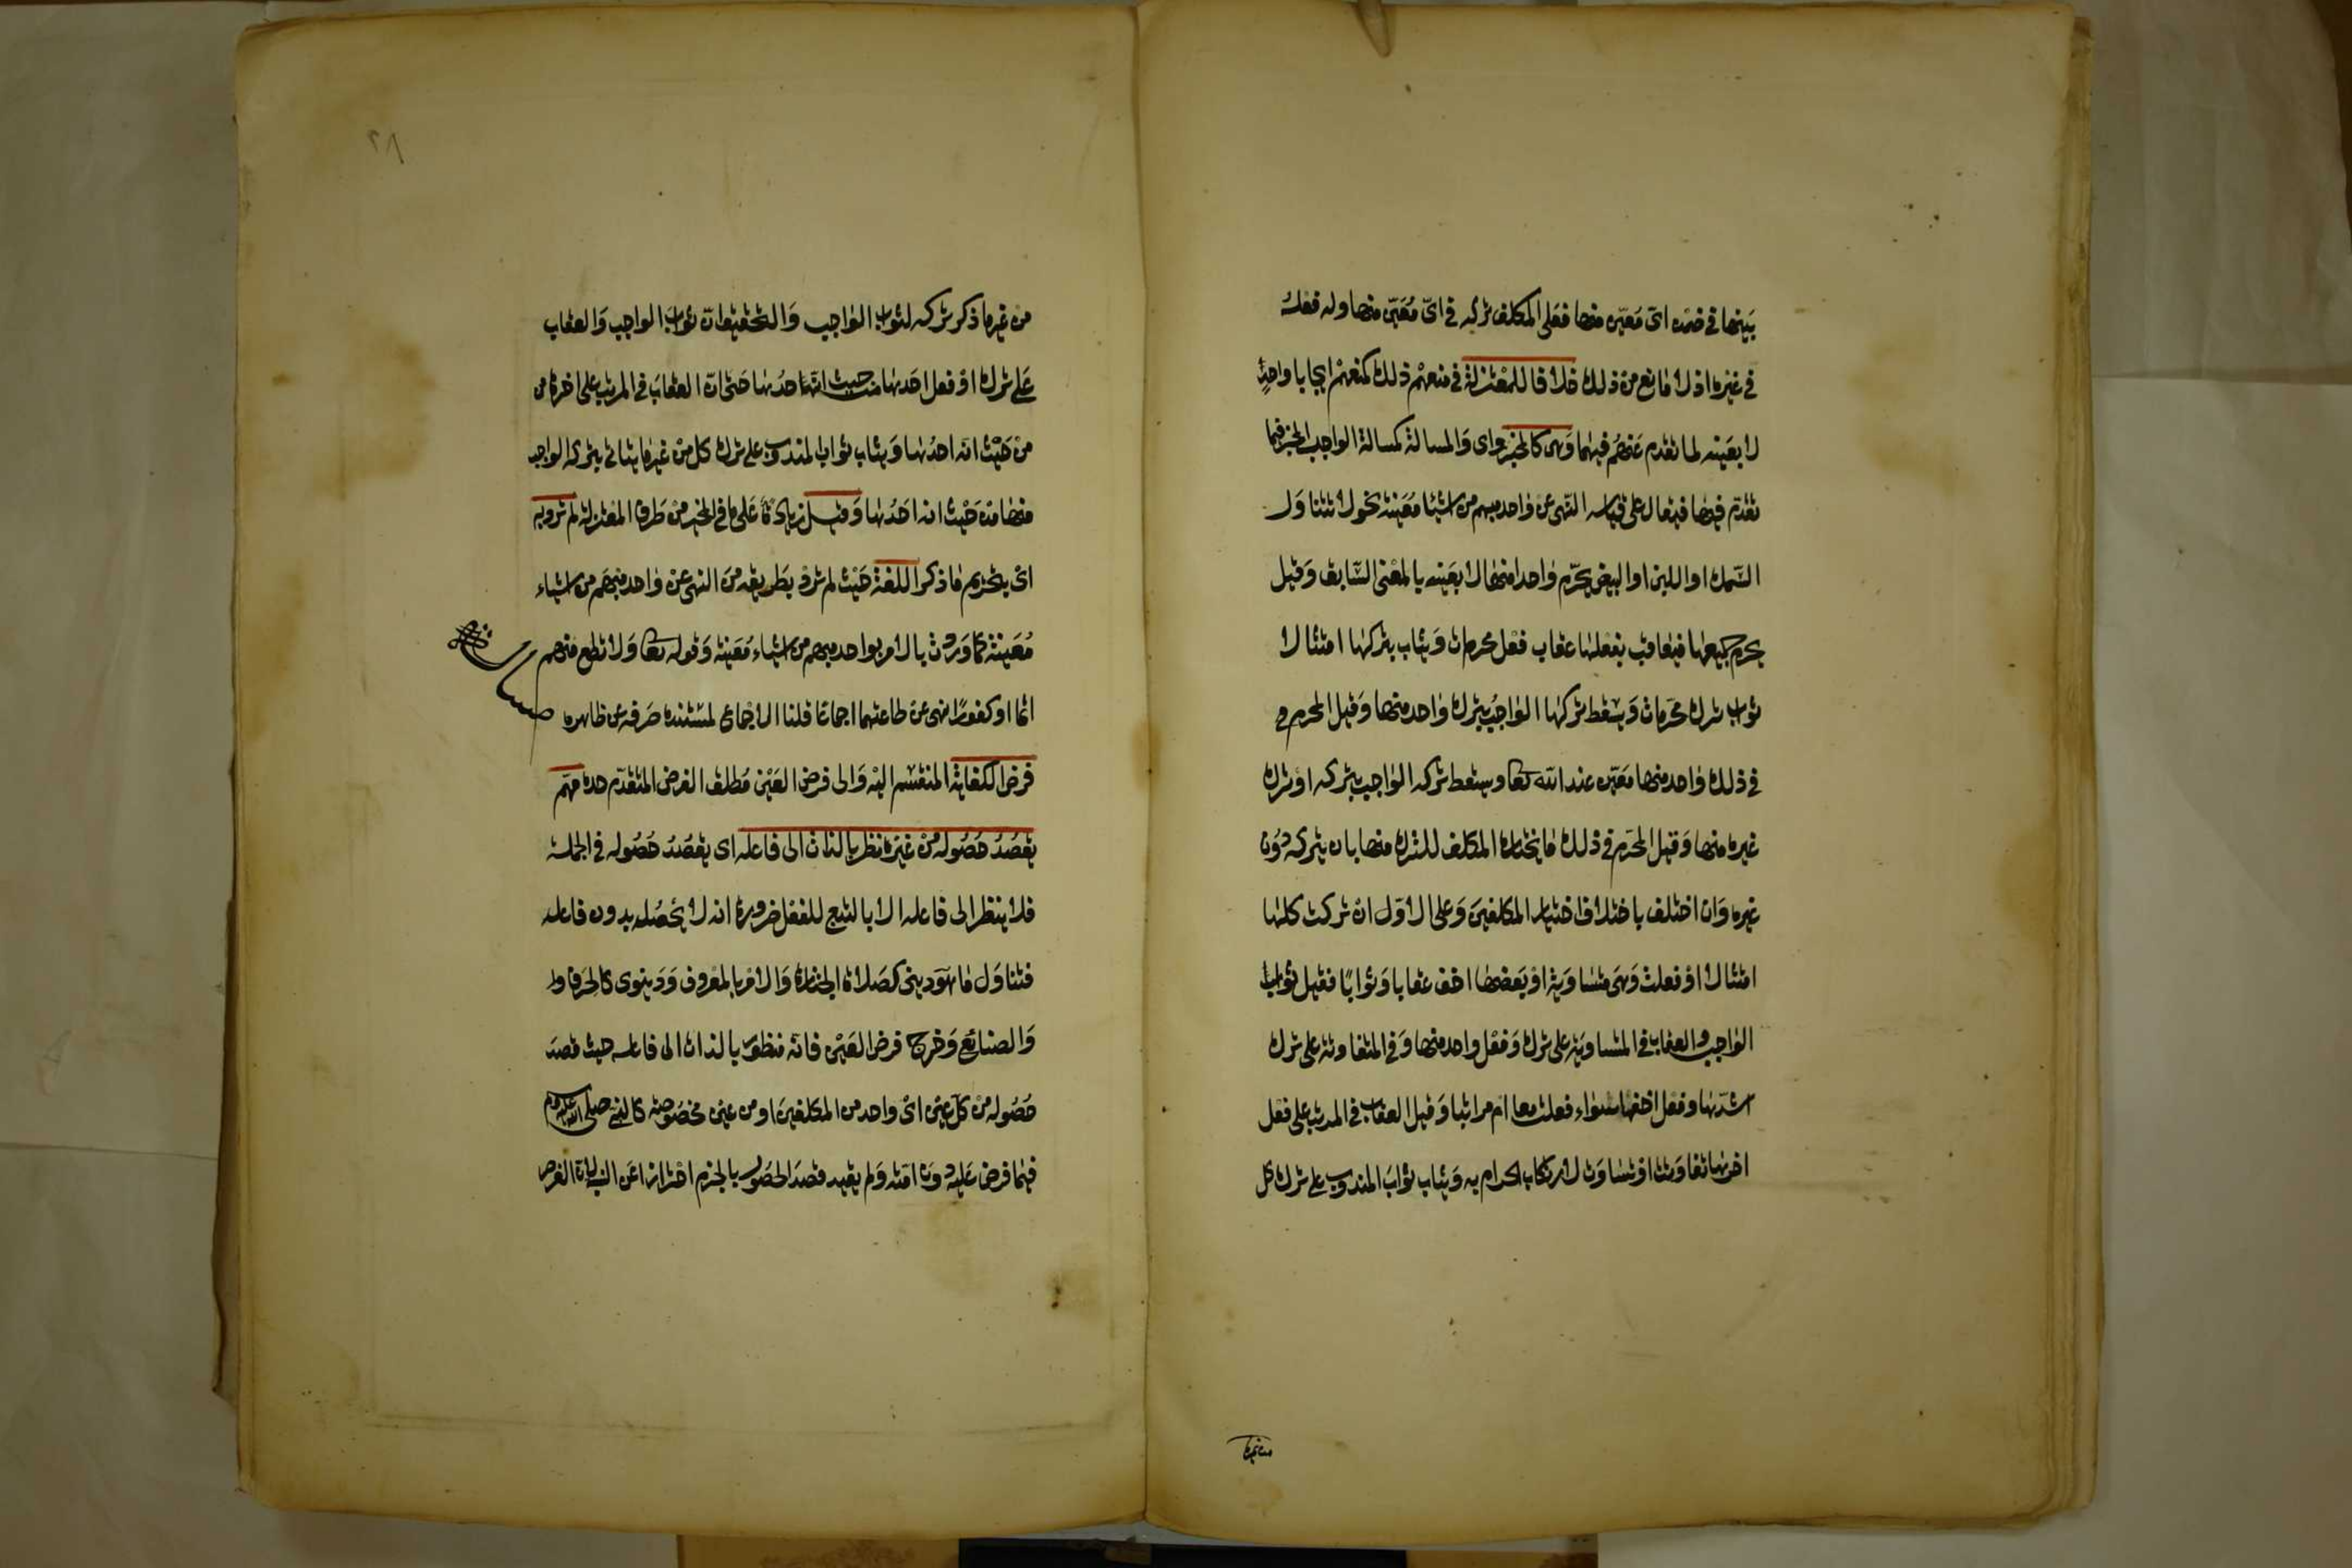 بينها في ضمن اى معين منها فعلى المكلف تركه في اىّ مُعَيّن منها وله فعله
في غيره اذ لا مانع من ذلك خلافا للمعتزلة في منعهم ذلك كمنعهم ايجاب واحدٍ
لا بعينه لما تقدم عنهم فيهما وهى كالمخير اى والمسالة كمسالة الواجب المخير فيما
تقدّم فيها فيقال على قياسه النهى عن واحد مبهم من اشيا معينة نحو لا تتناول
السّمك او اللبن او البيض يحرّم واحدا منها لا بعينه بالمعنى السّابق وقيل
يحرم جميعها فيعاقب بفعلها عقاب فعل محرمات ويثاب بتركها امتثالا
ثواب ترك محرّمات ويسقط تركها الواجب بترك واحد منها وقيل المحرم في
في ذلك واحد منها معيّن عند الله تعا ويسقط تركه الواجب بتركه او ترك
غيره منها وقيل المحرّم في ذلك ما يختاره المكلف للترك منها بان يتركه دون
غيره وان اختلف باختلاف اختيار المكلفين وعلى الاوّل ان تركت كلها
امتثالا او فعلت وهى متساوية او بعضها اخف عقابا وثوابًا فقيل ثواب
الواجب والعقاب في المتساوية على ترك وفعل واحد منها وفي المتفاوتة على ترك
اشدّها وفعل اخفها سواء فعلت معا ام مرتبا وقيل العقاب في المرتب على فعل
اخرها تفاوتت او تساوت لارتكاب الحرام به ويثاب ثواب المندوب على ترك كل
من غير
٢٨
من غير ما ذكر تركه لثواب الواجب والتحقيق ان ثواب الواجب والعقاب
على ترك او فعل احدها من حيث انه احدها حتى ان العقاب في المرتب على اخرها من
من حَيْث انه احدها ويثاب ثواب المندوب على ترك كل من غير ما يتادى بتركه الواجب
منها من حَيْث انه احدها وقيل زيادة على ما في المخير من طرف المعتزلة لم ترد به
اى بتحريم ما ذكر اللغة حَيْث لم ترد بطريقه من النهى عن واحد مبهم من اشياء
مُعَينة كما وردت بالامر بواحد مبهم من اشياء مُعَينة وقوله تعا ولا تطع منهم
اثما او كفورًا نهى عن طاعتهما اجماعا قلنا الاجماع لمستنده صرفه عن ظاهره
فرض الكفاية المنقسم اليه والى فرض العَيْن مُطلق الفرض المتقدّم حده مهمّ
يقصدُ حصُوله من غير نظر بالذات الى فاعله اى يقصدُ حصُوله في الجملة
فلا ينظر الى فاعله الا بالتبع للفعل ضرورة انه لا يحصل بدون فاعله
فتناول ما هو دينى كصلاة الجنازة والامر بالمعروف ودنيوى كالحرف و
والصنايع وخرج فرض العَيْن فانه منظور بالذات الى فاعله حيث قصد
حصُوله من كل عين اى واحد من المكلفين او من عين مخصوصة كالنبى صلى الله عليه وسلم
فيما فرض عليه دون امّته ولم يقيد قصد الحصُول بالجزم احترازا عن السنة لان الغرض